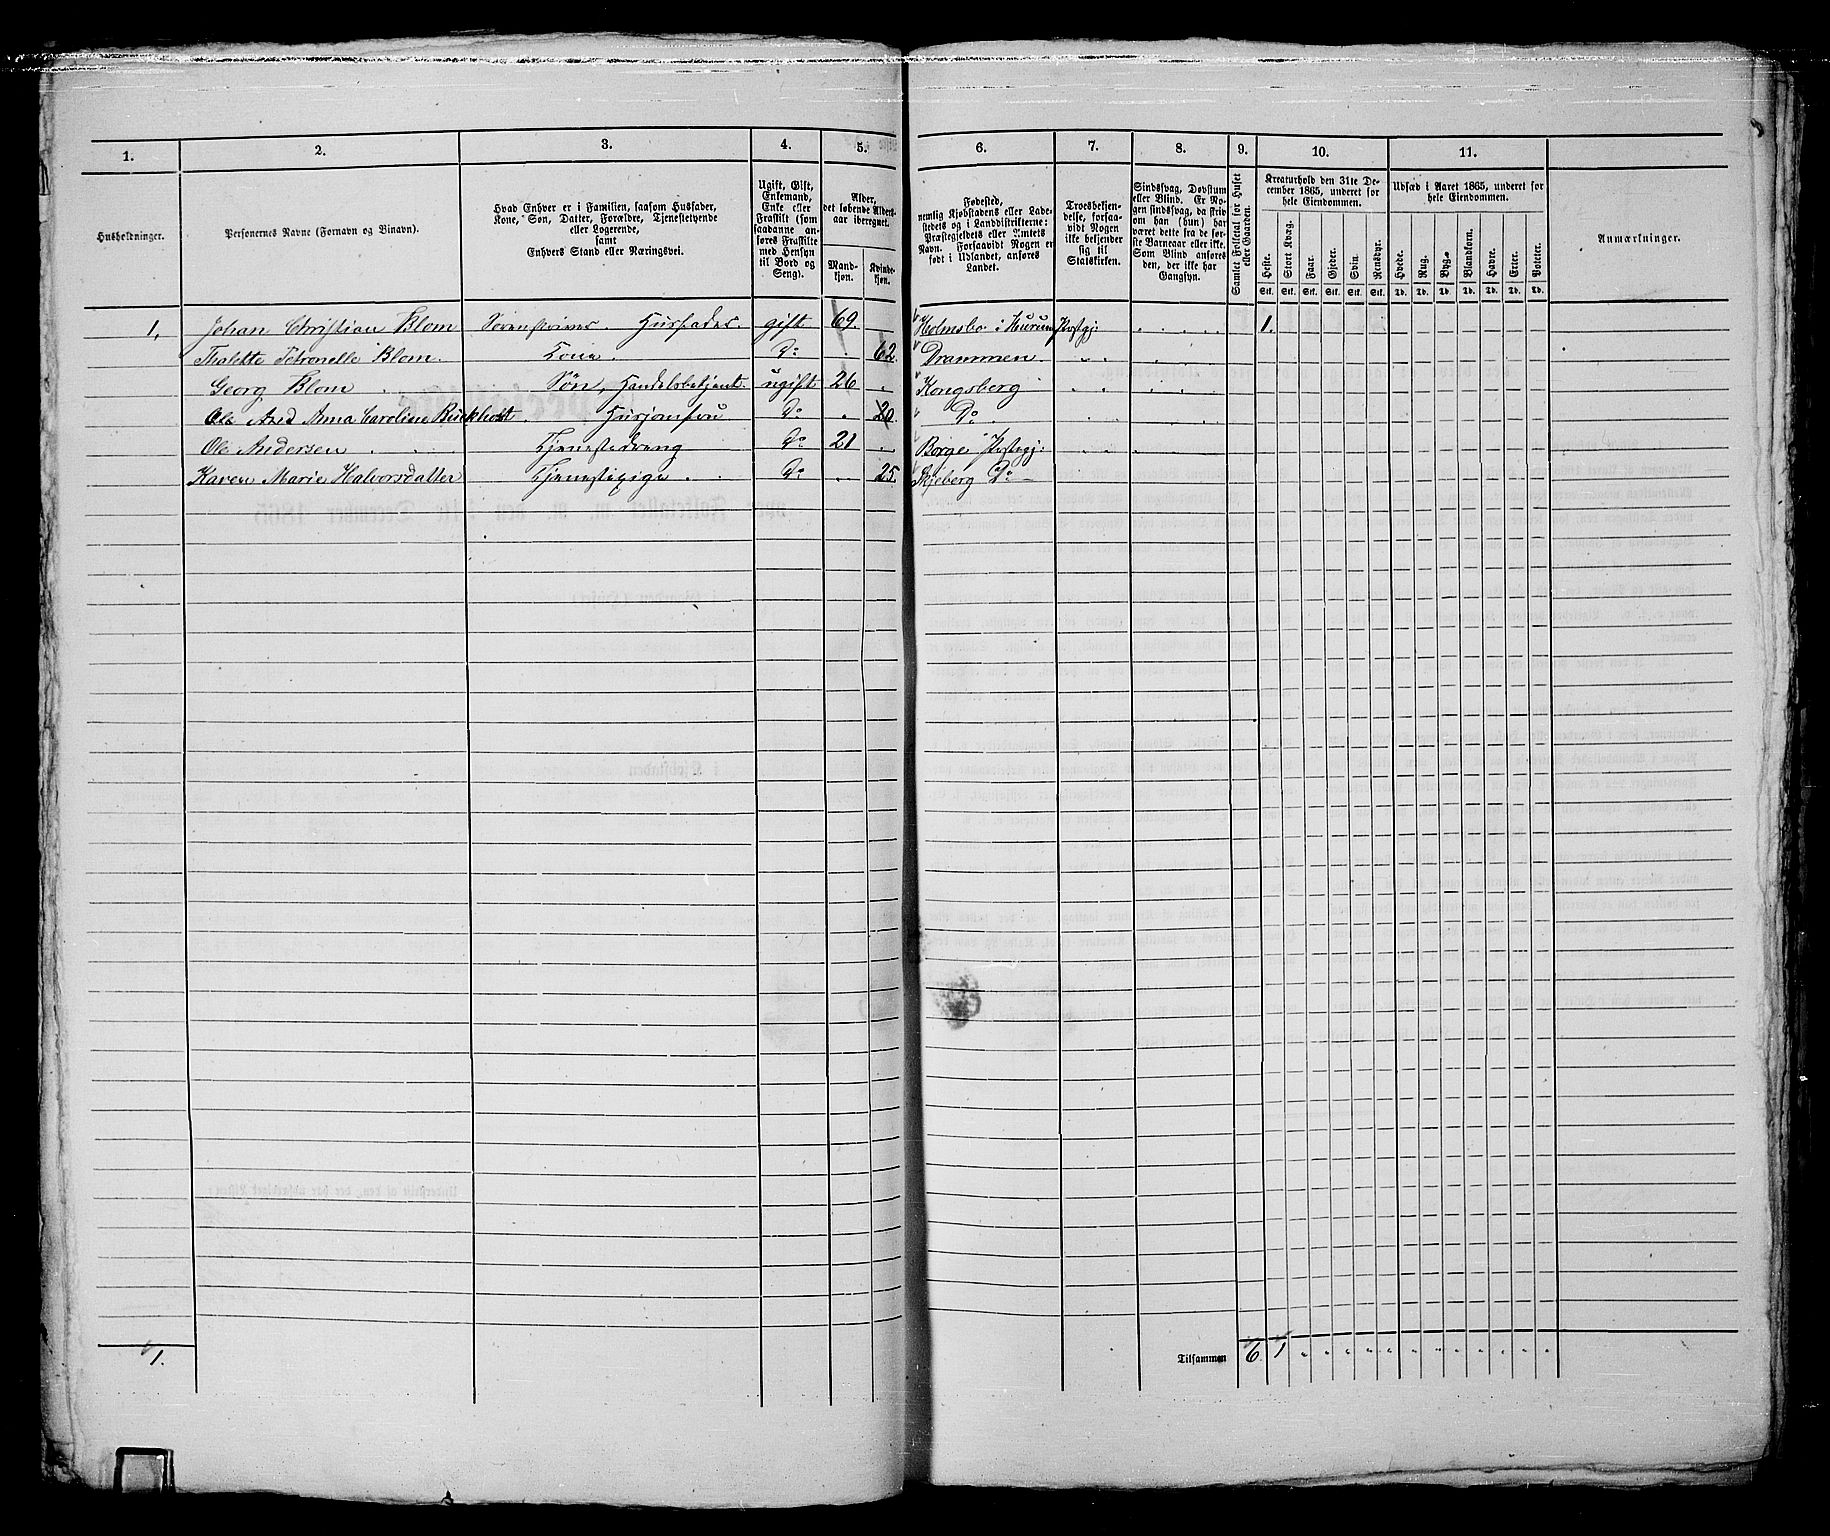 1. 2. 3. 4. 5. 6. 7. 8. 9. 10. 11.
Husholdninger.
Personernes Navne (Fornavn og Binavn).
Hvad Enhver er i Familien, saasom Husfader,
Kone, Søn, Datter, Forældre, Tjenestetyende
eller Logerende,
samt
Enhvers Stand eller Næringsvei.
Ugift, Gift,
Enkemand,
Enke eller
Fraskilt (som
saadanne an-
føres Fraskilte
med Hensyn
til Bord og
Seng).
Alder,
det løbende Alders-
aar iberegnet.
Mand-
kjøn.
Kvinde-
kjøn.
Fødested,
nemlig Kjøbstadens eller Lade-
stedets og i Landdistrikterne:
Præstegjeldets eller Amtets
Navn. Forsaavidt Nogen er
født i Udlandet, anføres
Landet.
Troesbekjen-
delse, forsaa-
vidt Nogen
ikke bekjender
sig til
Statskirken.
Sindssvag, Døvstum
eller Blind. Er No-
gen sindssvag, da skriv
om han (hun) har
været dette fra de før-
ste Barneaar eller ikke.
Som Blind anføres
den, der ikke har
Gangsyn.
Samlet Folketal for Huset
eller Gaarden.
Kreaturhold den 31te De-
cember 1865, underet for
hele Eiendommen.
Heste. Stort Kvæg. Faar. Gjeder. Svin. Rensdyr.
Stk. Stk. Stk. Stk. Stk. Stk.
Udsæd i Aaret 1865, underet for
hele Eiendommen.
Hvede. Rug. Byg. Blandkorn. Havre. Erter. Poteter.
Td. Td. Td. Td. Td. Td. Td.
Anmærkninger.
1, Johan Christian Blom Sorenskriver. Husfader. gift 69. Holmsbo i Hurum Prstgj: 1.
Thalette Petronelle Blom. Kone. Do 62. Drammen.
Georg Blom Søn, Handelsbetjent. ugift 26 Kongsberg
Ole And Anna Caroline Buckholt Husjomfru Do 20. Do
Ole Andersen Tjenestedreng Do 21 Borge Prstegj:
Karen Marie Halvorsdatter Tjenestepige Do 25. Skjeberg Do
1. Tilsammen 6. 1